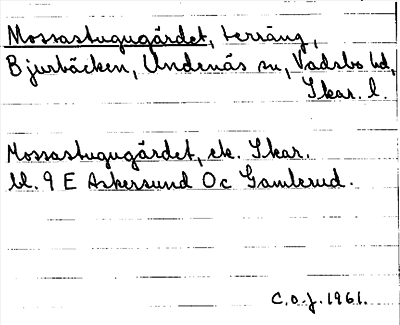 Mossastugugärdet, terräng,
Bjurbäcken, Undenäs sn, Vadsbo hd,
Skar. l.
Mossastugugärdet, ek. Skar.
bl. 9 E Askersund Oc Gamlerud.
C.O.J. 1961.